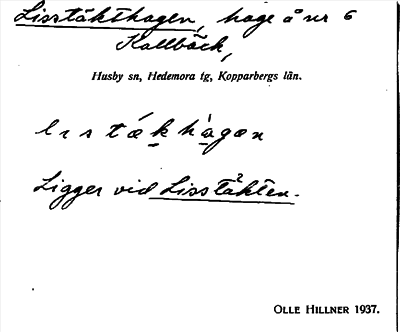 Lisstäktshagen, hage å nr 6
Kallbäck,
Husby sn, Hedemora tg, Kopparbergs län.
Ligger vid Lisstäkten.
OLLE HILLNER 1937.